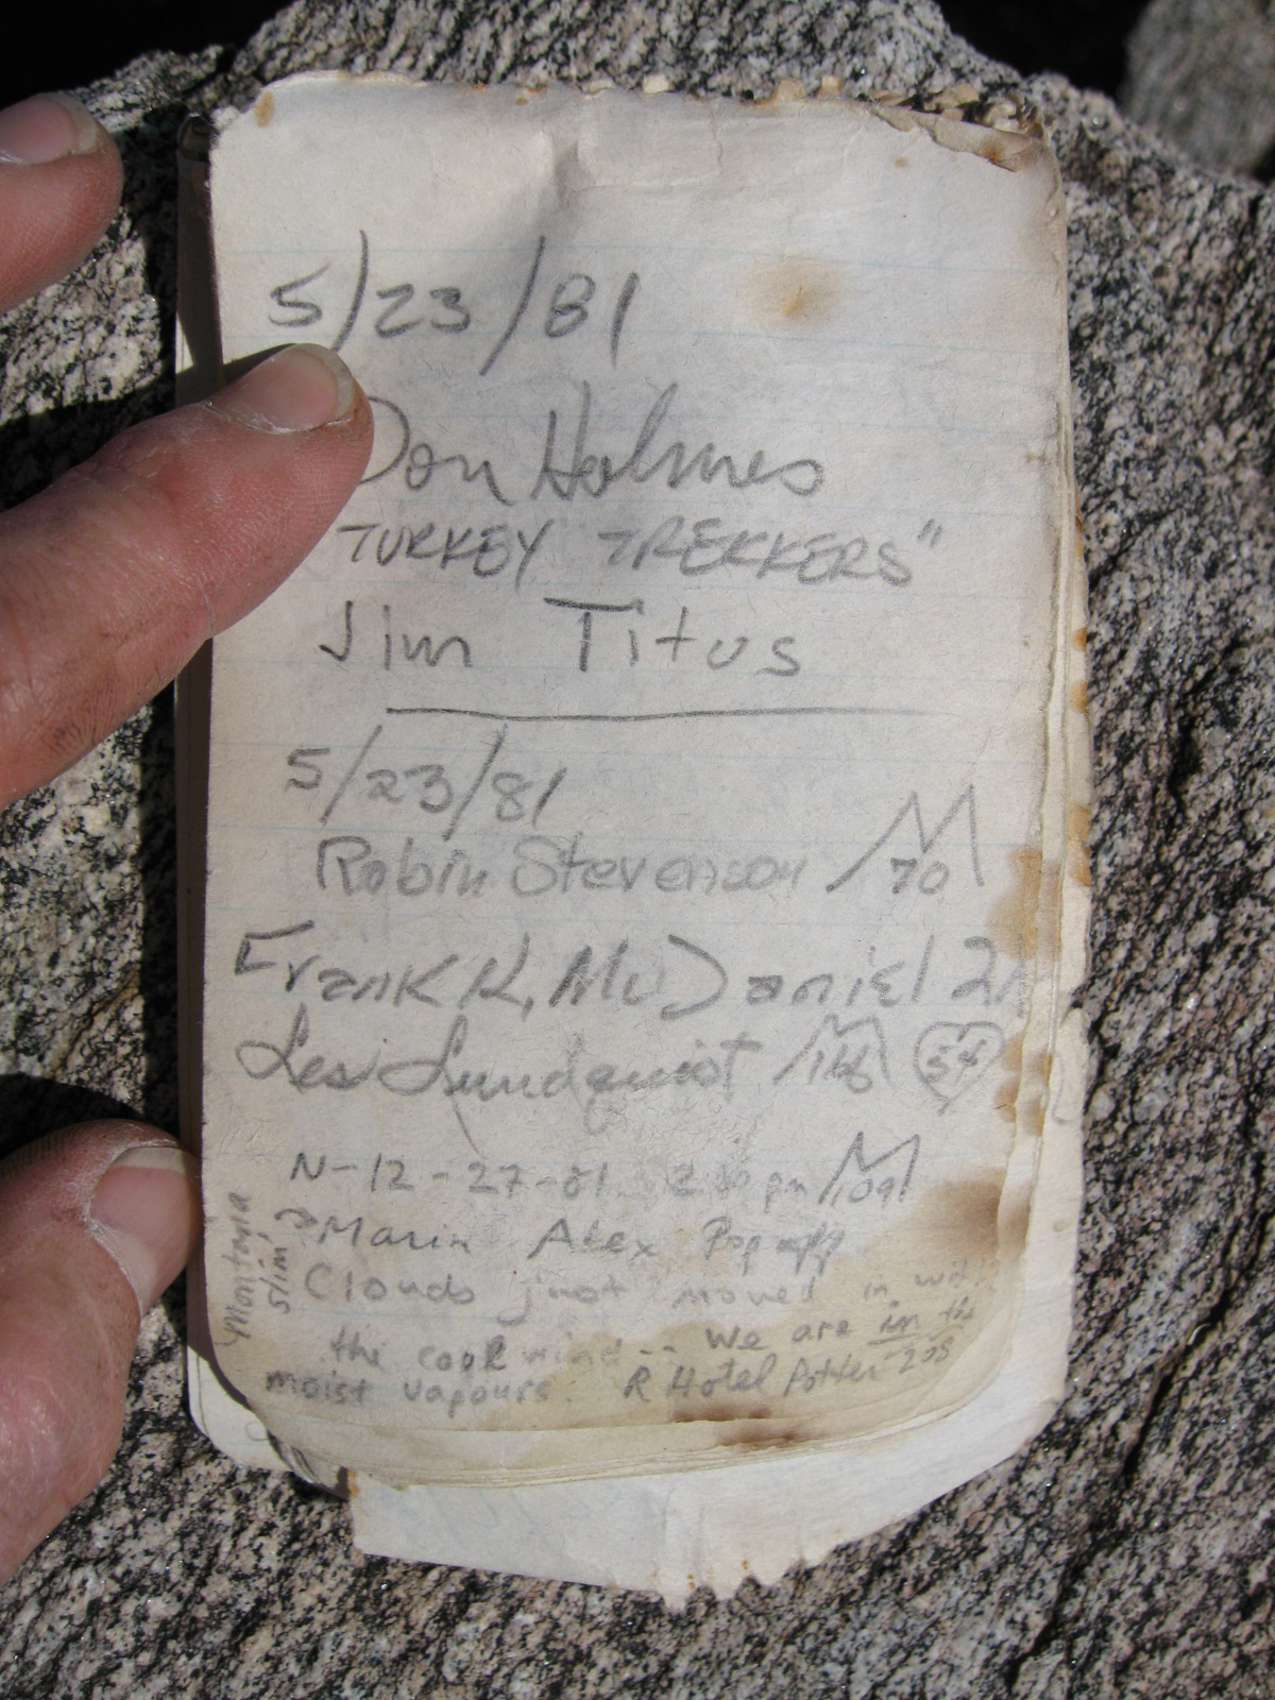 5/23/81
Don Holmes
TURKEY TREKKERS"
Jim Titus
5/23/81
Robin Stevenson 70
Frank K. McDaniel
Les Lundquist 54
N-12-27-81 pm 109
Marin Alex
Montana
Slim
Clouds just moved in
the cool wind -- we are in the
moist vapours. R Hotel Potter 205